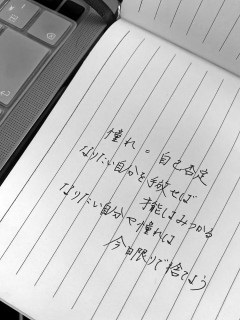 憧れ = 自己否定
なりたい自分を手放せば
才能はみつかる
なりたい自分や憧れは
今日限りで捨てよう